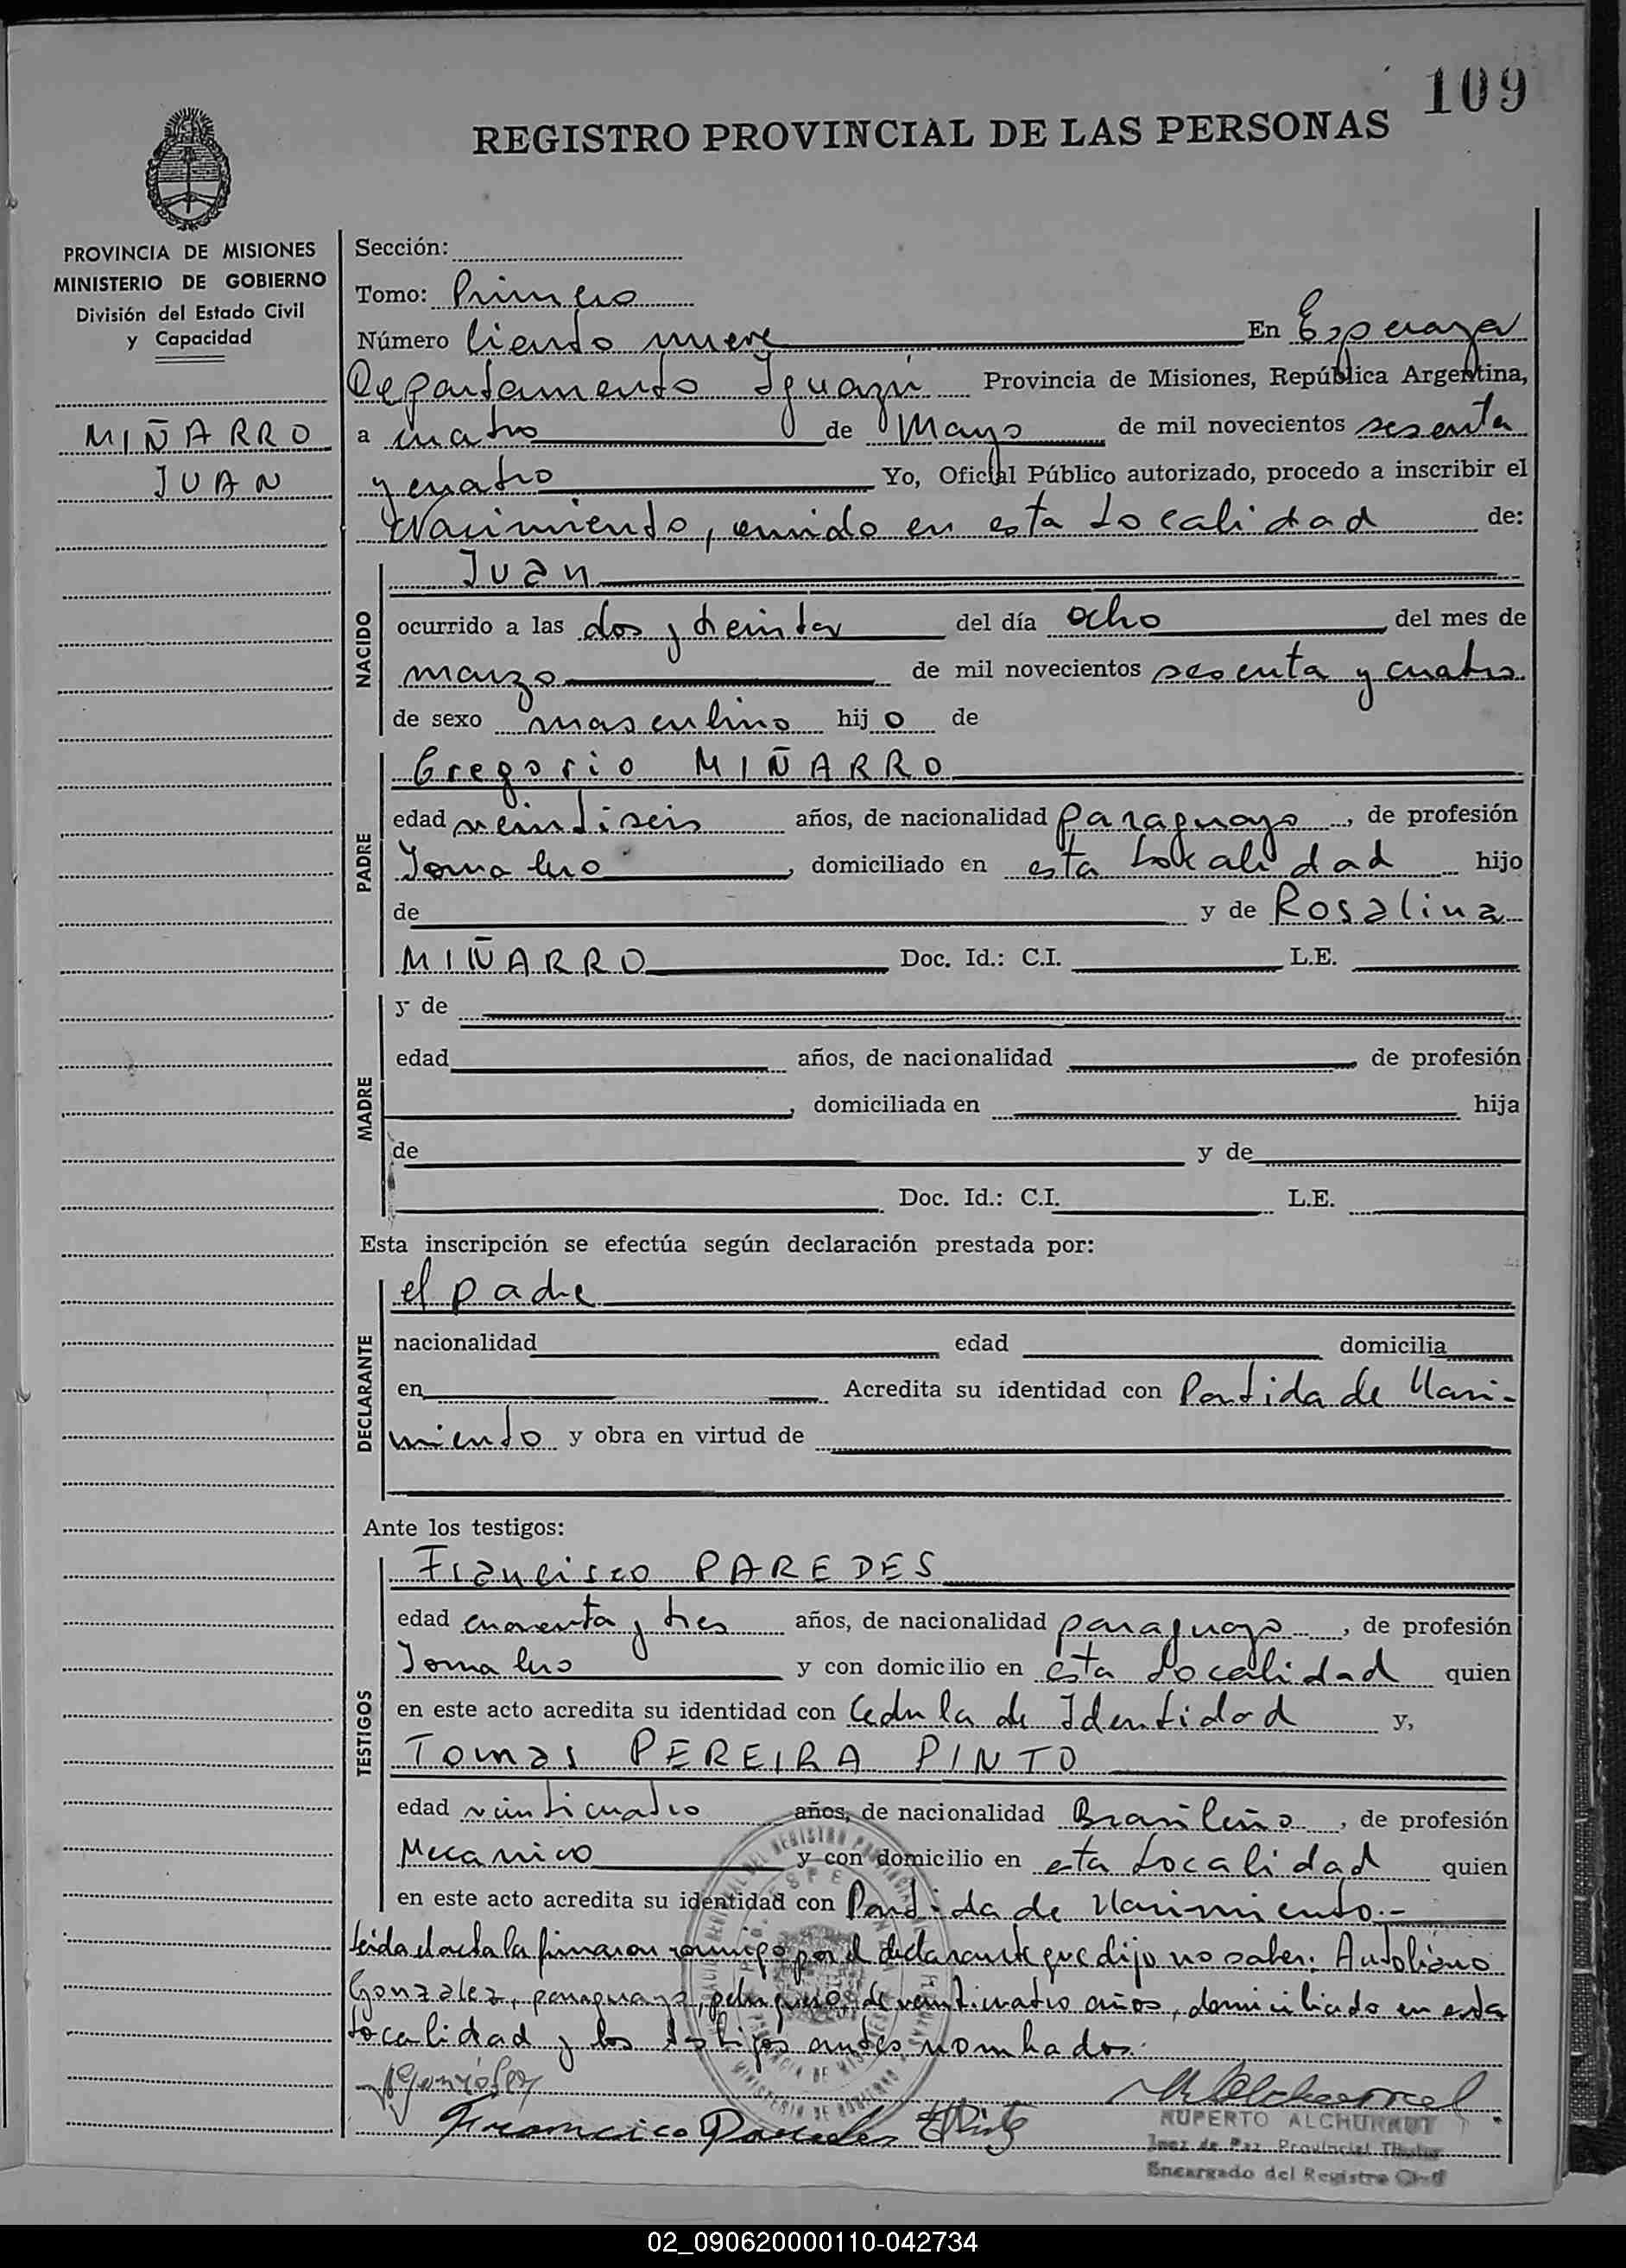 109
REGISTRO PROVINCIAL DE LAS PERSONAS
PROVINCIA DE MISIONES
MINISTERIO DE GOBIERNO
División del Estado Civil
y Capacidad
MIÑARRO
JUAN
Sección:
Tomo: Primero
Número Ciento nueve En Esperanza
Departamento Iguazú Provincia de Misiones, República Argentina,
a cuatro de Mayo de mil novecientos sesenta
y cuatro Yo, Oficial Público autorizado, procedo a inscribir el
Nacimiento, en esta Localidad de:
Juan
NACIDO
ocurrido a las dos y treinta del día ocho del mes de
marzo de mil novecientos sesenta y cuatro
de sexo masculino hijo de
PADRE
Gregorio MIÑARRO
edad veintiseis años, de nacionalidad paraguayo, de profesión
Jornalero, domiciliado en esta Localidad hijo
de y de Rosalina
MIÑARRO Doc. Id.: C.I. L.E.
MADRE
y de
edad años, de nacionalidad de profesión
, domiciliada en hija
de y de
Doc. Id.: C.I. L.E.
Esta inscripción se efectúa según declaración prestada por:
DECLARANTE
el padre
nacionalidad edad domicilia
en Acredita su identidad con Partida de Naci-
miento y obra en virtud de
Ante los testigos:
TESTIGOS
Francisco PAREDES
edad cuarenta y tres años, de nacionalidad paraguayo, de profesión
Jornalero y con domicilio en esta Localidad quien
en este acto acredita su identidad con Cedula de Identidad y,
Tomas PEREIRA PINTO
edad veinticuatro años, de nacionalidad Brasileño, de profesión
Mecanico y con domicilio en esta Localidad quien
en este acto acredita su identidad con Partida de Nacimiento.-
Leida el acta la firmaron conmigo por el declarante que dijo no saber: Autoliano
Gonzalez, paraguayo, de veinticuatro años, domiciliado en esta
Localidad y los testigos antes nombrados.
Francisco Paredes
RUPERTO ALCHURRUT
Juez de Paz Provincial Titular
Encargado del Registro Civil
02_090620000110-042734